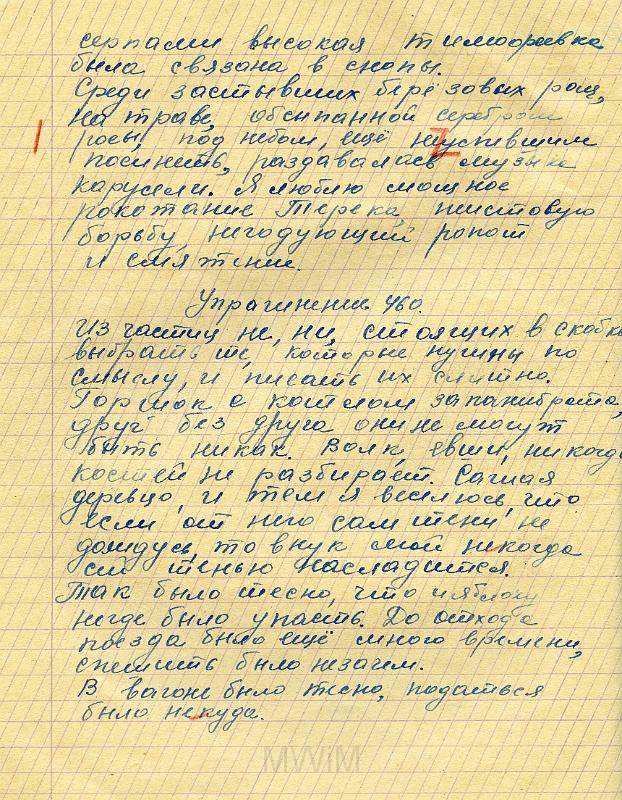 серпами высокая тимофеевка
была связана в снопы.
Среди застывших берёзовых рощ,
на траве, обсыпанной серебром
росы, под небом, ещё неуспевшим
посинеть, раздавалась музыка
карусели. Я люблю мощное
рокотание Терека, неистовую
борьбу, негодующий ропот
и смятение.
Упражнение 460.
Из частиц не, ни, стоящих в скобк
выбрать те, которые нужны по
смыслу, и писать их слитно.
Горшок с котлом запанибрата,
друг без друга они не могут
быть никак. Волк, евши, никогда
костей не разбирает. Сажая
деревцо, и тем я веселюсь, что
если от него сам тени не
дождусь, то внук мой некогда
сей тенью насладится.
Так было тесно, что и яблоку
негде было упасть. До отхода
поезда было ещё много времени,
спешить было незачем.
В вагоне было тесно, податься
было некуда.
MWiM